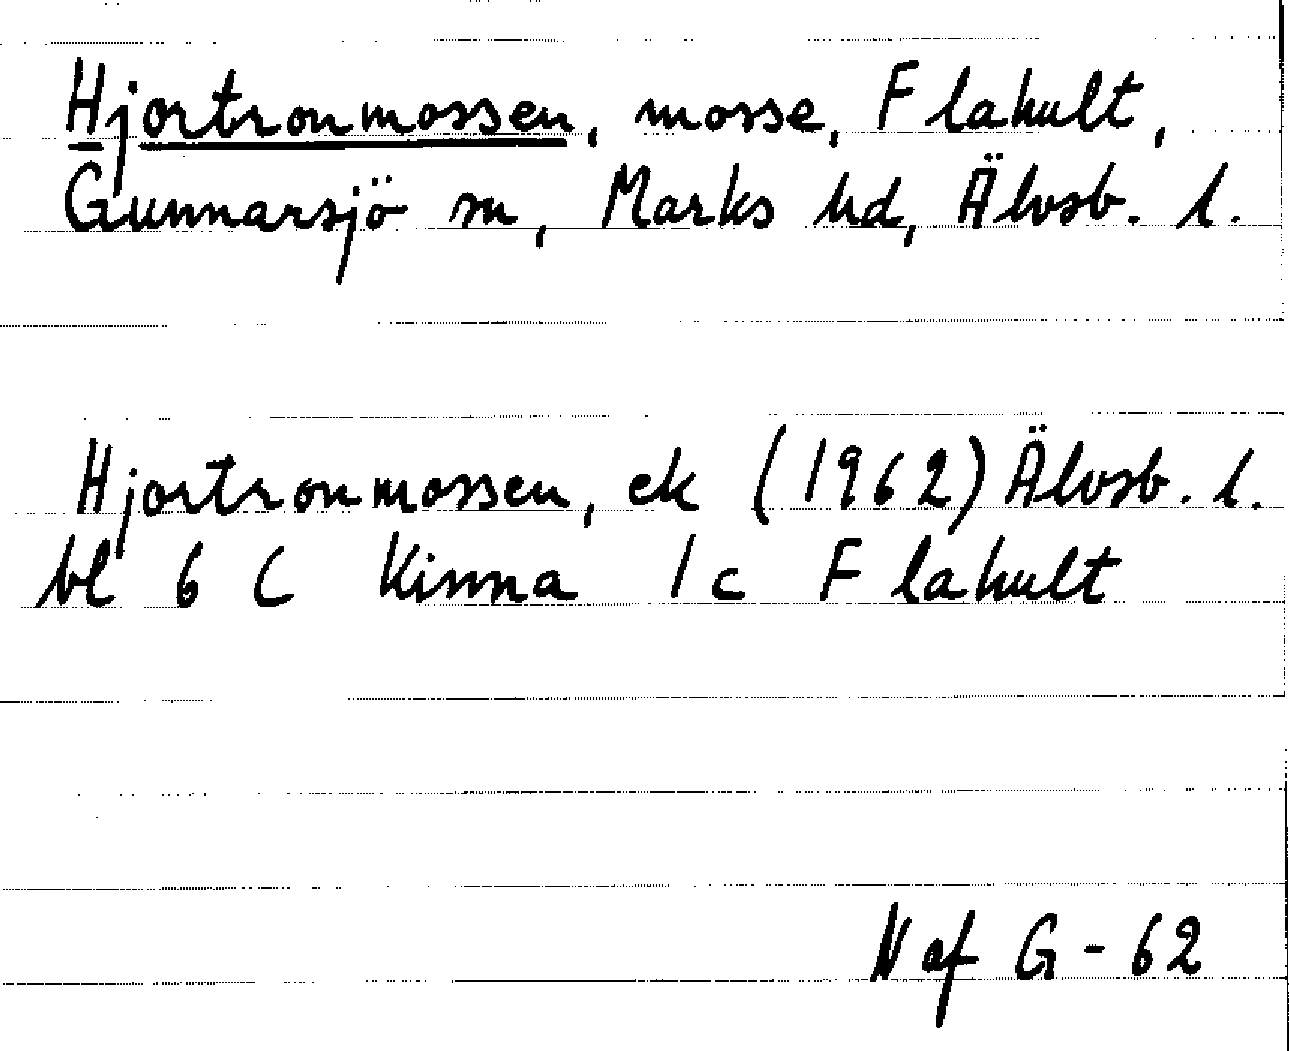 Hjortronmossen, mosse, Flahult,
Gunnarsjö sn, Marks hd, Älvsb. l.
Hjortronmossen, ek (1962) Älvsb. l.
bl 6 C Kinna 1 c Flahult
N af G - 62